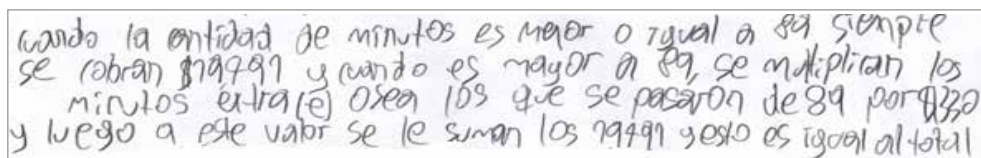 cuando la cantidad de minutos es menor o igual a 89 siempre
se cobran $19491 y cuando es mayor a 89, se multiplican los
minutos extra(e) osea los que se pasaron de 89 por
y luego a este valor se le suman los 19491 y esto es igual al total